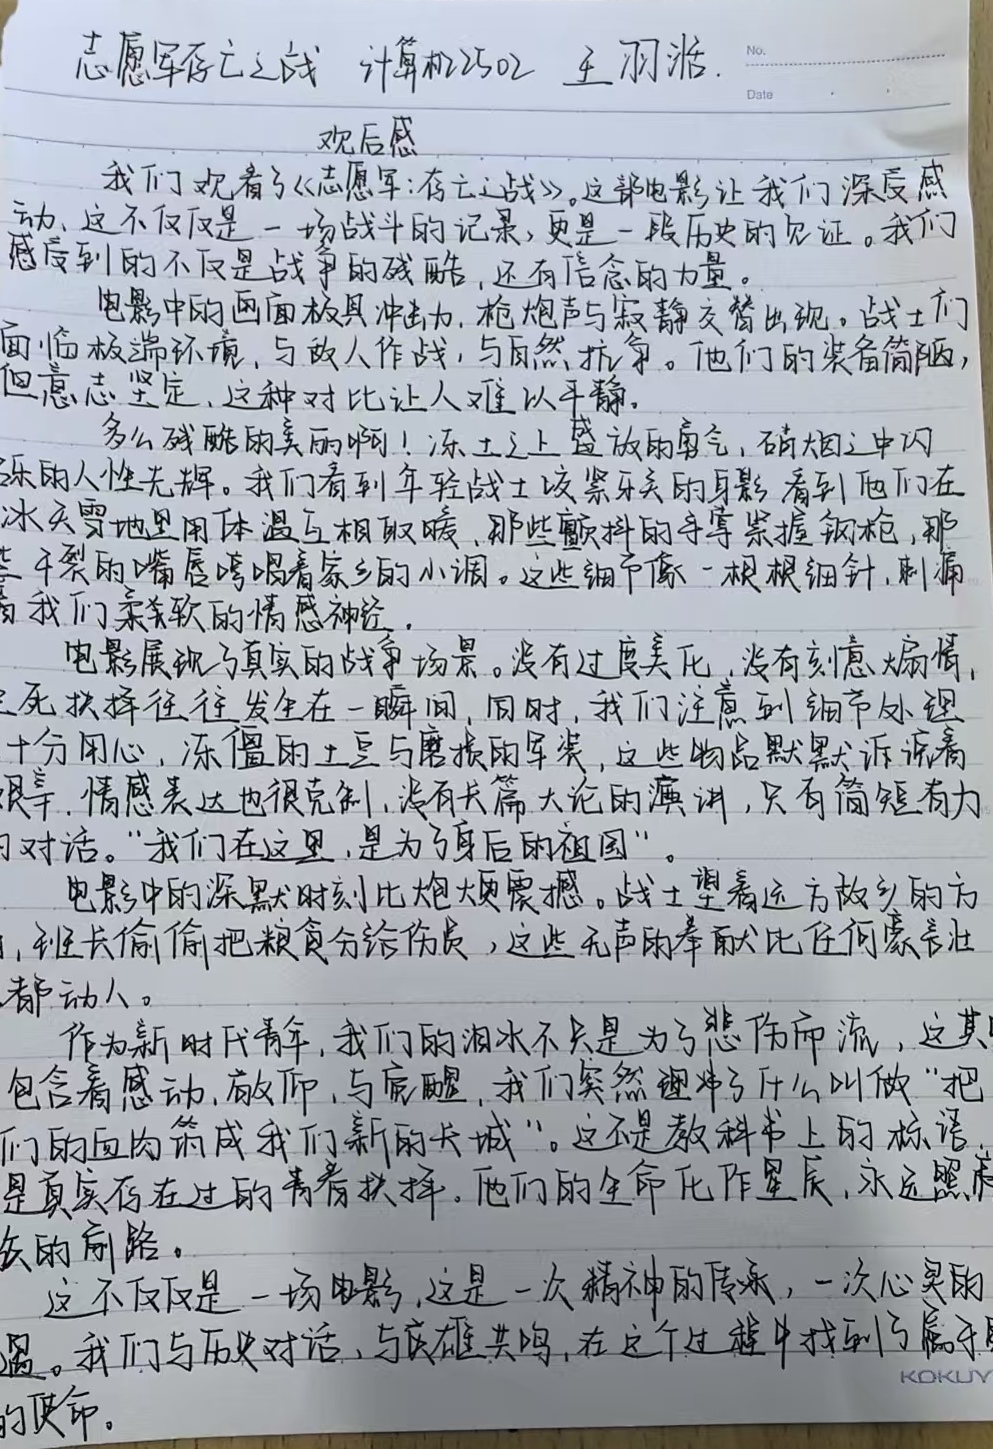 志愿军存亡之战 计算机2502 王羽浩.
No.
Date
观后感
我们观看了《志愿军:存亡之战》。这部电影让我们深受感
动,这不仅仅是一场战斗的记录,更是一段历史的见证。我们
感受到的不仅是战争的残酷,还有信念的力量。
电影中的画面极具冲击力,枪炮声与寂静交替出现。战士们
面临极端环境,与敌人作战,与自然抗争。他们的装备简陋,
但意志坚定,这种对比让人难以平静。
多么残酷的美丽啊!冻土之上盛放的勇气,硝烟之中闪
烁的人性光辉。我们看到年轻战士咬紧牙关的身影看到他们在
冰天雪地里用体温互相取暖,那些颤抖的手掌紧握钢枪,那
些干裂的嘴唇哼唱着家乡的小调。这些细节像一根根细针,刺痛
着我们柔软的情感神经.
电影展现了真实的战争场景。没有过度美化,没有刻意煽情,
生死抉择往往发生在一瞬间,同时,我们注意到细节处理
十分用心,冻僵的土豆与磨损的军装,这些物品默默诉说着
艰辛.情感表达也很克制,没有长篇大论的演讲,只有简短有力
的对话。“我们在这里,是为了身后的祖国”。
电影中的深默时刻比炮火更震撼。战士望着远方故乡的方
,班长偷偷把粮食分给伤员,这些无声的奉献比任何豪言壮
都动人。
作为新时代青年,我们的泪水不只是为了悲伤而流,这其中
包含着感动,敬仰,与底醒,我们突然理解了什么叫做“把
们的血肉筑成我们新的长城”。这不是教科书上的标语,
是真实存在过的青春抉择.他们的生命化作星辰,永远照亮
族的前路。
这不仅仅是一场电影,这是一次精神的传承,一次心灵的
遇。我们与历史对话,与英雄共鸣,在这个过程中找到了属于
的使命。
KOKUY